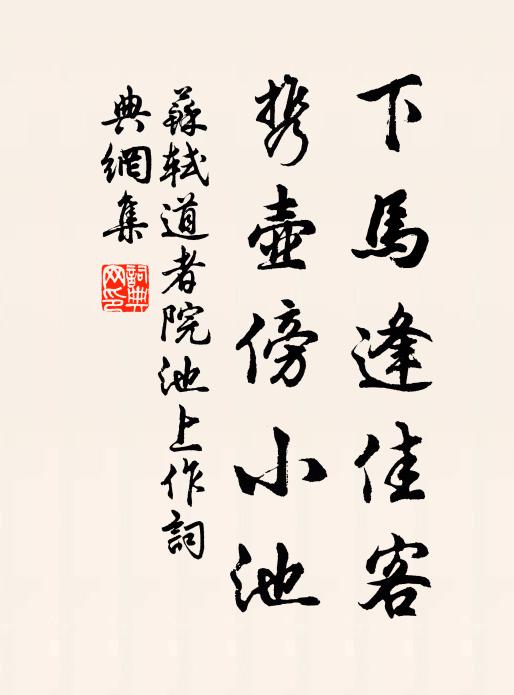 下馬逢佳客
携壺傍小池
蘇軾道者院池上作詞
典網集
詞典
网印